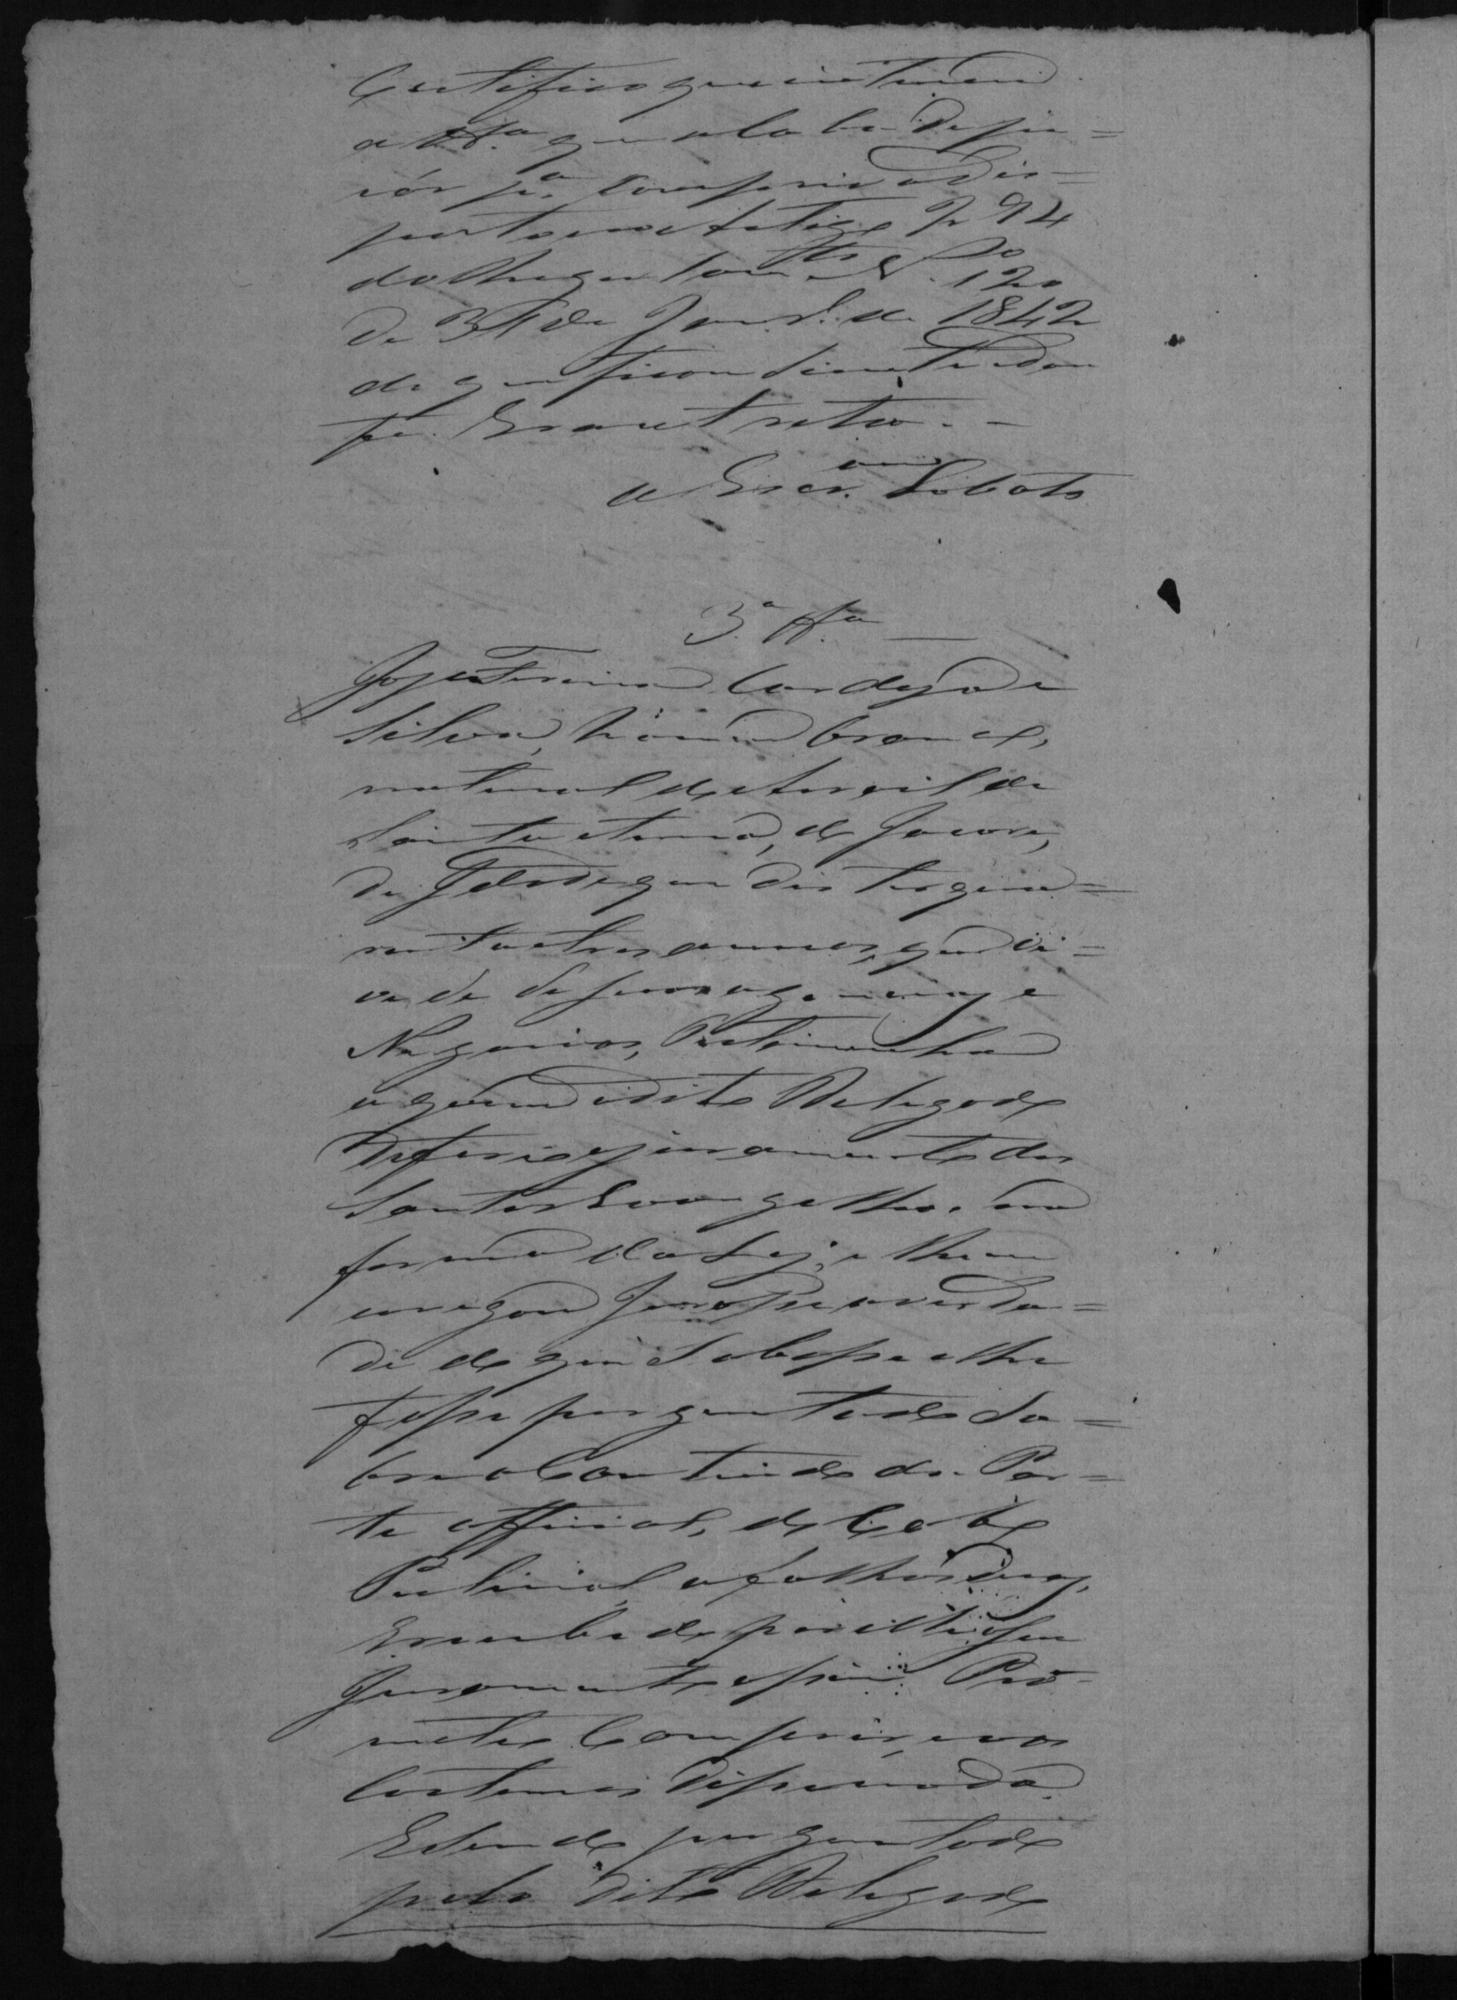 Certifico que intimei
a tt.ª que acaba de depor
pª. comprir o dis=
posto no artigo 294
do Regulamto Nº 120
de 31 de Janrº. de 1842
de que ficou sciente e dou
fé. Eu escrevi.
o Escr.am Lobato
3ª. tt.ª
José Ferreira Cardozo e
Silva, homem branco,
natural do Arraial de
Santo Antonio, de Jacoré,
de Idade que diz ter qua=
renta e tres annos, que vi=
ve de Sua agencia, e
Negocios, testemunha
a quem o dito Delegado
deferio o juramento dos
Santos Evangelhos, na
forma da Lei, e lhe en
carregou jurasse a verda=
de do que soubesse e lhe
fosse perguntado so=
bre o Contiudo da Par=
te official, do Cabo
Policial, a folhas duas,
E recebido por elle o seu
Juramento, assim Pro
meteu Comprir, e aos
Costumes disse nada.
E sendo perguntado
pelo dito Delegado